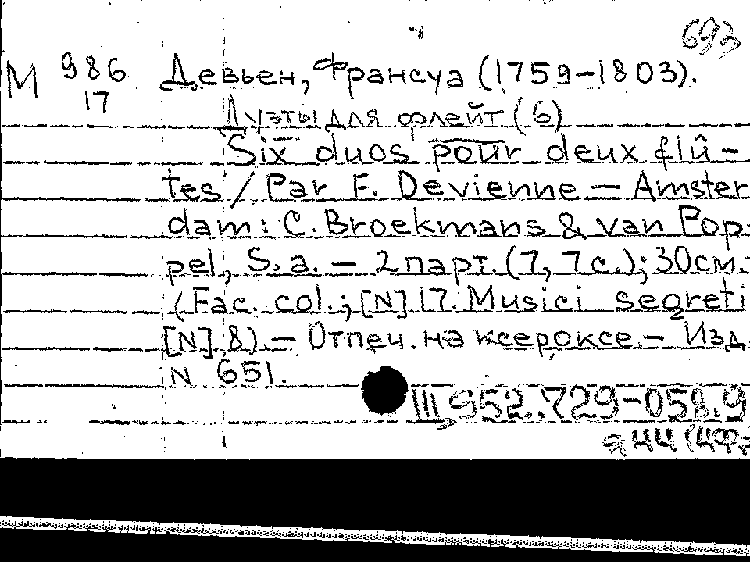 693
М 986 Девьен, Франсуа (1759-1803).
17
Дуэты для флейт (6)
Six duos pour deux flû-
tes / Par F. Devienne – Amster
dam: C. Broekmans & van Pop-
pel, S. a. – 2 парт. (7, 7 с.); 30 см. –
(Fac. col.; [N] 17. Musici segreti
[N] 8). – Отпеч. на ксероксе. – Изд.
N 651.
Ш 952.729-058.9
я 44 (4Фр